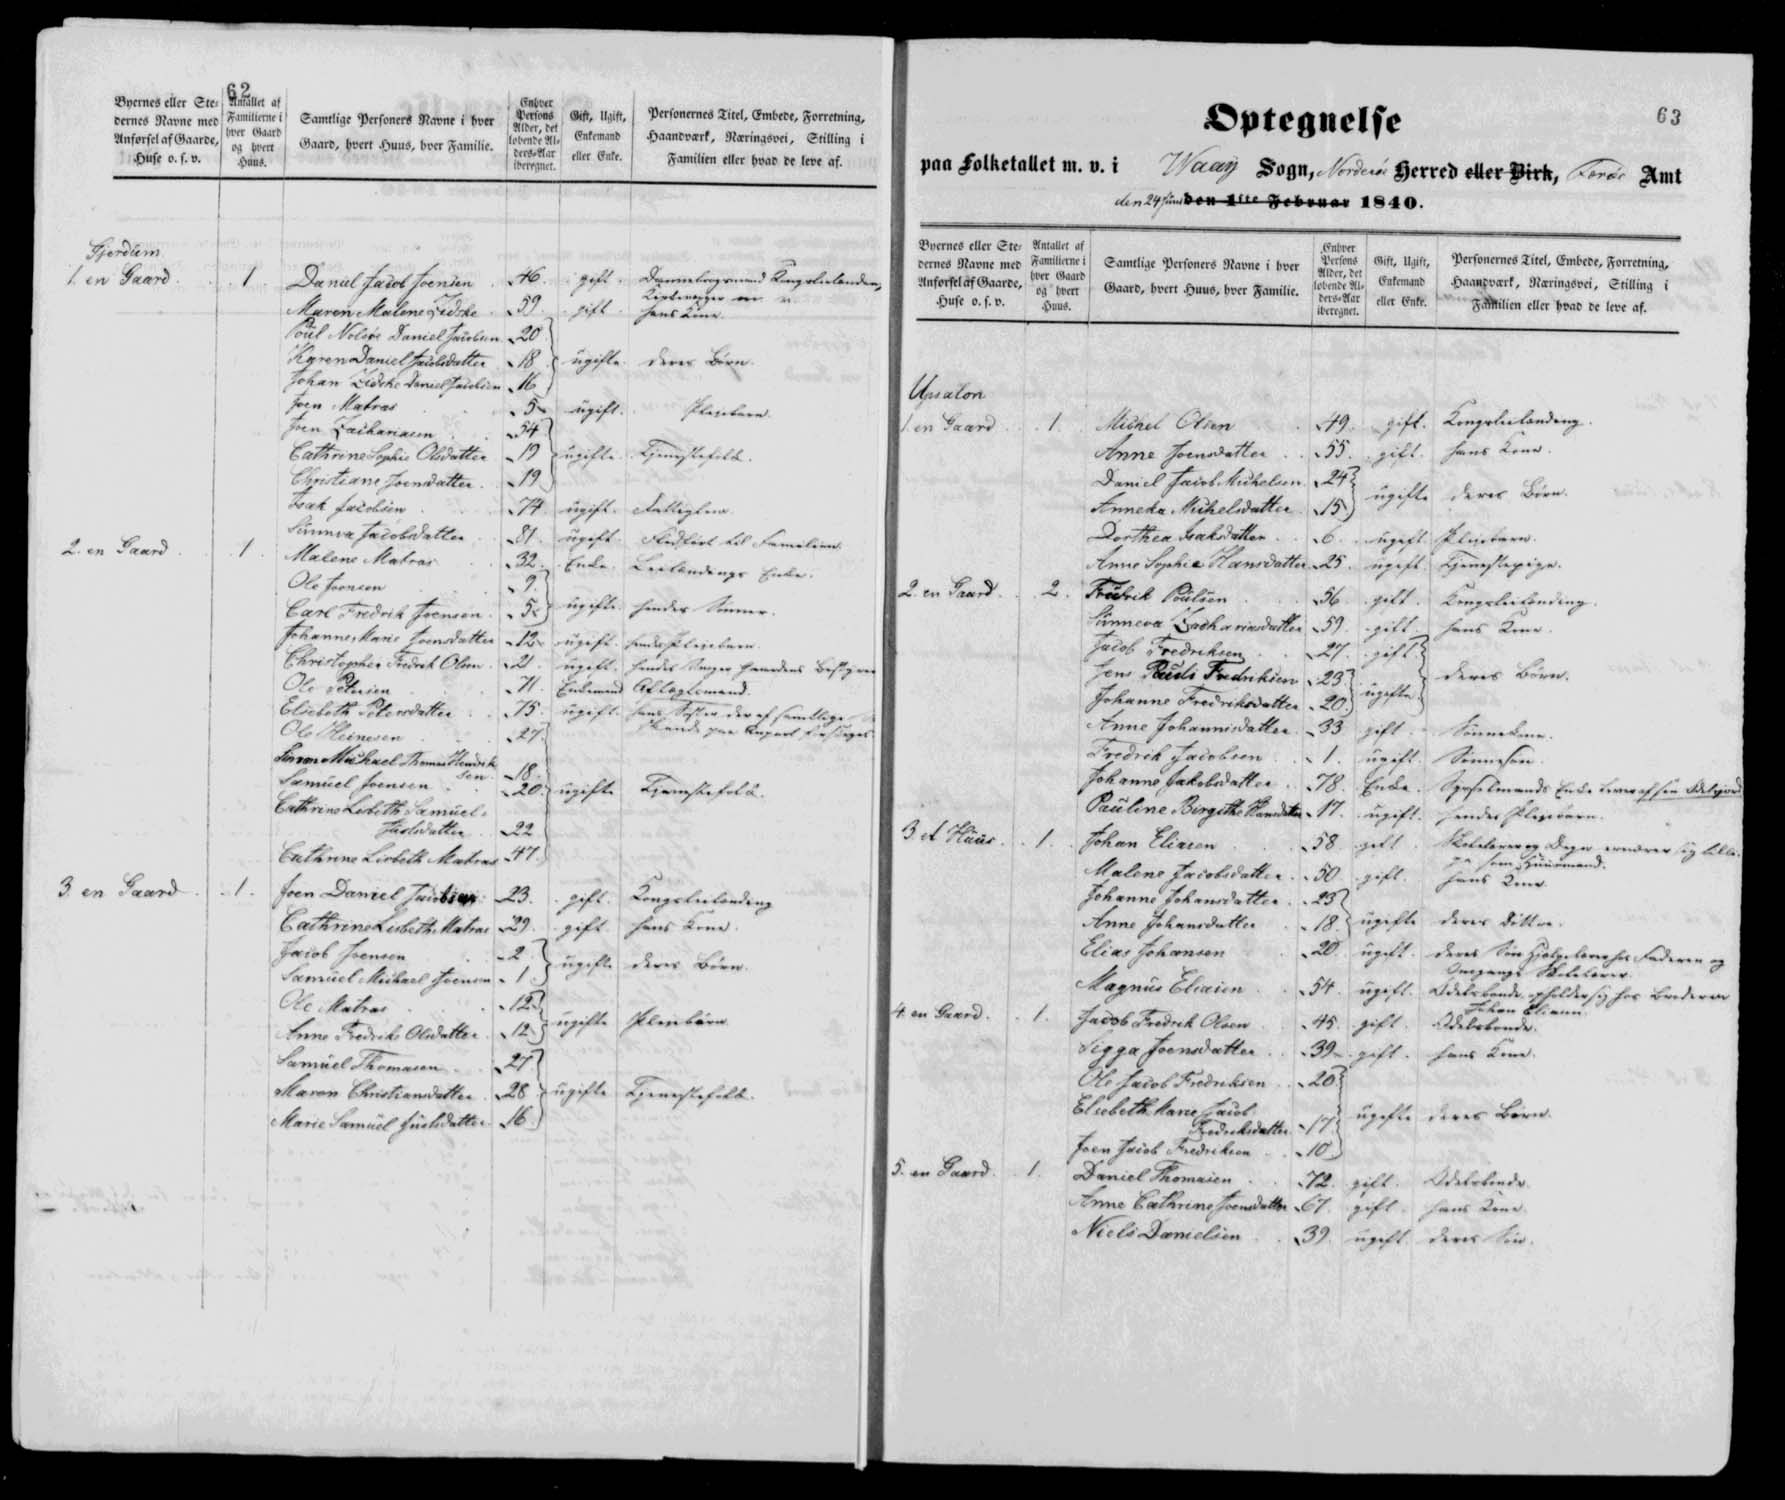 62
Byernes eller Ste-
dernes Navne med
Anførsel af Gaarde,
Huse o. s. v.
Antallet af
Familierne i
hver Gaard
og hvert
Huus.
Samtlige Personers Navne i hver
Gaard, hvert Huus, hver Familie.
Enhver
Persons
Alder, det
løbende Al-
ders-Aar
iberegnet.
Gift, Ugift,
Enkemand
eller Enke.
Personernes Titel, Embede, Forretning,
Haandværk, Næringsvei, Stilling i
Familien eller hvad de leve af.
1. en Gaard 1 Daniel Jacob Joensen 46 gift Dannebrogsmand Kongsleilænding,
Maren Malene 59 gift hans Kone
Poül Nolsöe Daniel Jacobsen 20
Karen Daniel Jacobsdatter 18 ugifte deres Børn
Johan Daniel Jacobsen 16
Joen Matras 5 ugift Pleiebarn
Joen Zachariasen 54
Cathrine Sophie Olsdatter 19 ugifte Tjenestefolk
Christiane Joensdatter 19
Isak Jacobsen 74 ugift
Sünneva Jacobsdatter 81 ugift til Familien
2. en Gaard 1 Malene Matras 32 Enke Leilændings Enke
Ole Joensen 9
Carl Fredrik Joensen 5 ugifte hendes Sönner
Johanne Marie Joensdatter 12 ugift hendes Pleiebarn
Christopher Fredrik Olsen 21 ugift hendes Gaardens Bestyrer
Ole Petersen 71 Enkemand Aftægtsmand
Elsebeth Petersdatter 75 ugift hans Søster
Ole Heinesen 27
Simon Michael Thomas Hendrik
sen 18
Samüel Joensen 20 ugifte Tjenestefolk
Cathrine Lisbeth Samüel
Justsdatter 22
Cathrine Lisbeth Matras 47
3 en Gaard 1 Joen Daniel Jacobsen 23 gift Kongsleilænding
Cathrine Lisbeth Matras 29 gift hans Kone
Jacob Joensen 2
Samüel Michael Joensen 1 ugifte deres Børn
Ole Matras 12
Anne Fredrike Olsdatter 12 ugifte Pleiebørn
Samüel Thomasen 27
Maren Christiansdatter 28 ugifte Tjenestefolk
Marie Samüel Justsdatter 16
63
Optegnelse
paa Folketallet m. v. i Waaÿ Sogn, Norderøe Herred eller Birk, Færöe Amt
den 24 Juni den 1ste Februar 1840.
Byernes eller Ste-
dernes Navne med
Anførsel af Gaarde,
Huse o. s. v.
Antallet af
Familierne i
hver Gaard
og hvert
Huus.
Samtlige Personers Navne i hver
Gaard, hvert Huus, hver Familie.
Enhver
Persons
Alder, det
løbende Al-
ders-Aar
iberegnet.
Gift, Ugift,
Enkemand
eller Enke.
Personernes Titel, Embede, Forretning,
Haandværk, Næringsvei, Stilling i
Familien eller hvad de leve af.
Upsalon
1. en Gaard 1. Michel Olsen 49 gift Kongsleilænding
Anne Joensdatter 55 gift hans Kone
Daniel Jacob Michelsen 24
Anneka Michelsdatter 15 ugifte deres Børn
Dorthea Isaksdatter 6 ugift Pleiebarn
Anne Sophie Hansdatter 25 ugift Tjenestepige
2. en Gaard 2. Fridrik Poülsen 56 gift Kongsleilænding
Sünneva Zachariasdatter 59 gift hans Kone
Jacob Fredriksen 27 gift
Jens Pauli Fredriksen 23 ugifte deres Børn
Johanne Fredriksdatter 20
Anne Johannisdatter 33 gift Sønnekone
Fredrik Jacobsen 1 ugift Sønnesøn
Johanne Jakobsdatter 78 Enke Sysselmands Enke lever af sin Odelsjord
Pauline Birgithe Hansdatter 17 ugift hendes Pleiebarn
3 et Hüüs 1. Johan Eliasen 58 gift Skolelærer og Degn ernærer sig tillige
som Huusmand
Malene Jacobsdatter 50 gift hans Kone
Johanne Johansdatter 23
Anne Johansdatter 18 ugifte deres Døttre
Elias Johansen 20 ugift deres Søn Hjælpelærer hos Faderen og
Omgangs Skolelærer
Magnüs Eliasen 54 ugift Odelsbonde opholder sig hos Broderen
Johan Eliasen
4. en Gaard 1. Jacob Fredrik Olsen 45 gift Odelsbonde
Sigga Joensdatter 39 gift hans Kone
Ole Jacob Fredriksen 20
Elsebeth Marie Jacob
Fredriksdatter 17 ugifte deres Børn
Joen Jacob Fredriksen 10
5. en Gaard 1. Daniel Thomasen 72 gift Odelsbonde
Anne Cathrine Joensdatter 67 gift hans Kone
Niels Danielsen 39 ugift deres Søn